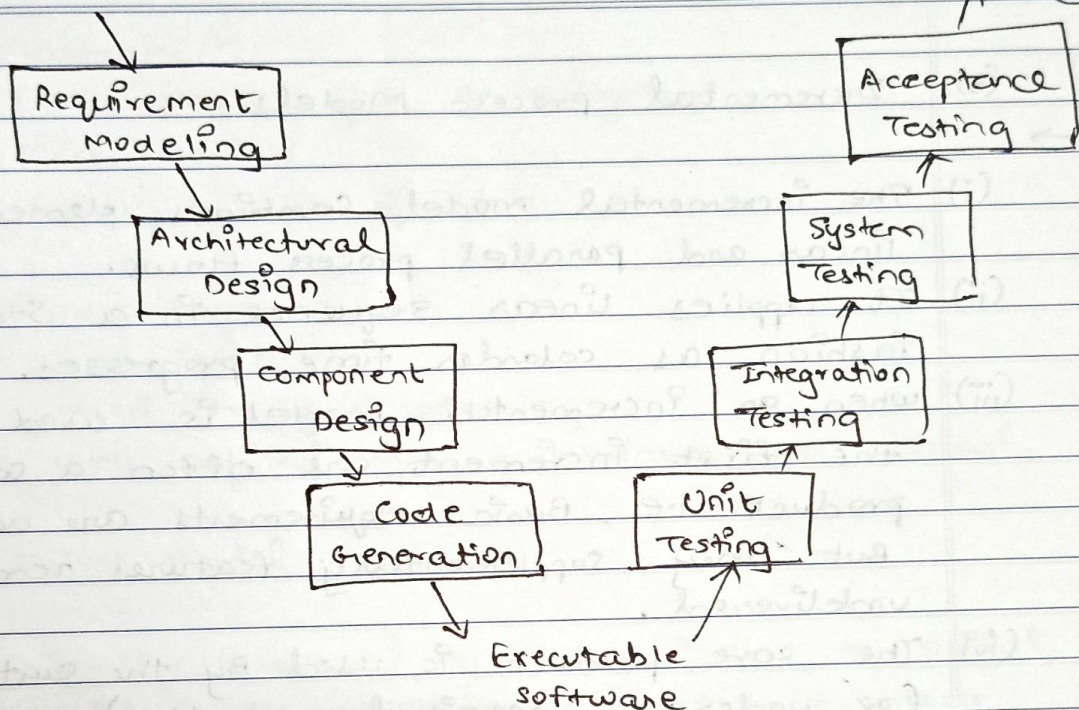 Requirement
Modeling
Architectural
Design
Component
Design
Code
Generation
Executable
Software
Unit
Testing
Integration
Testing
System
Testing
Acceptance
Testing